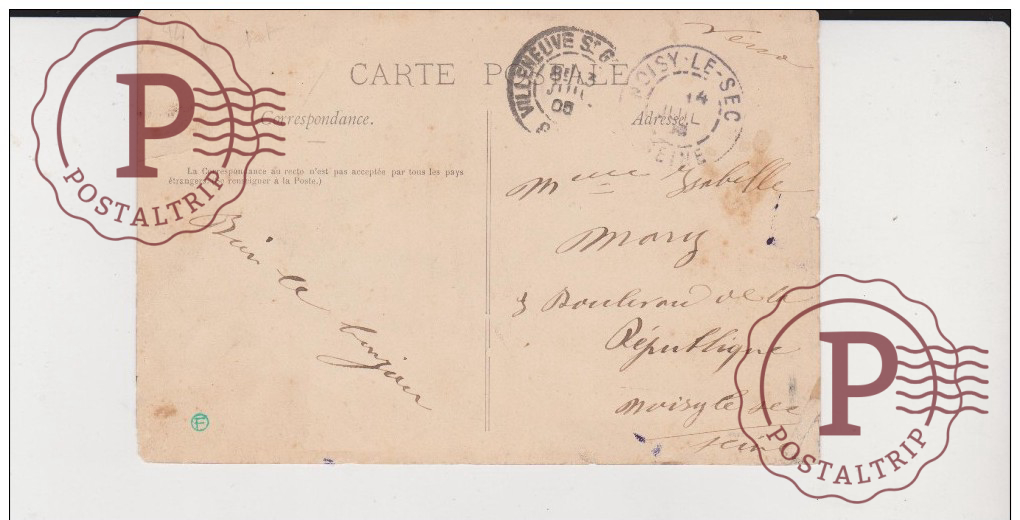 Verso
CARTE POSTALE
VILLENEUVE St G
13
JUIL
06
NOISY-LE-SEC
14
JUIL
SEINE
Correspondance.
Adresse.
La Correspondance au recto n'est pas acceptée par tous les pays
étrangers. Se renseigner à la Poste.)
Mme Isabelle
Mary
3 Boulevard de la
République
Noisy le sec
Seine
Bien le bonjour
F
P
POSTALTRIP
P
POSTALTRIP